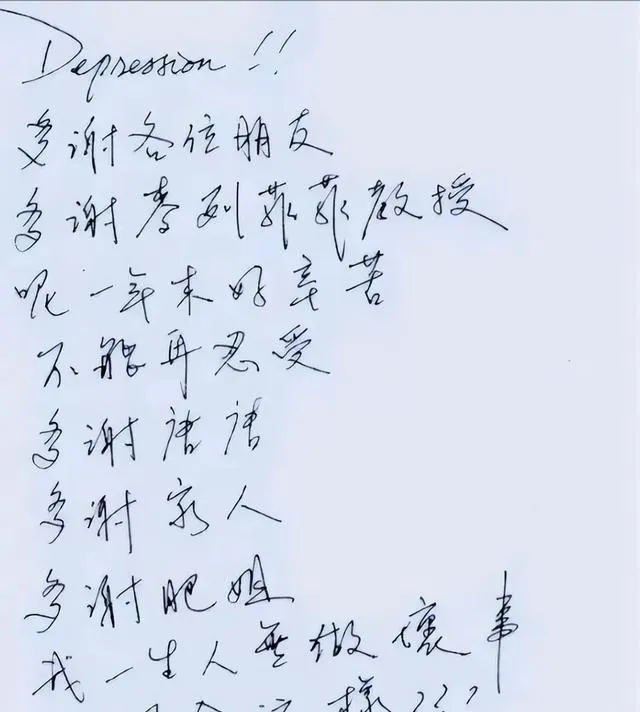 Depression!!
多謝各位朋友
多謝麥列菲菲教授
呢一年來好辛苦
不能再忍受
多謝唐唐
多謝家人
多謝肥姐
我一生人無做壞事
這樣???